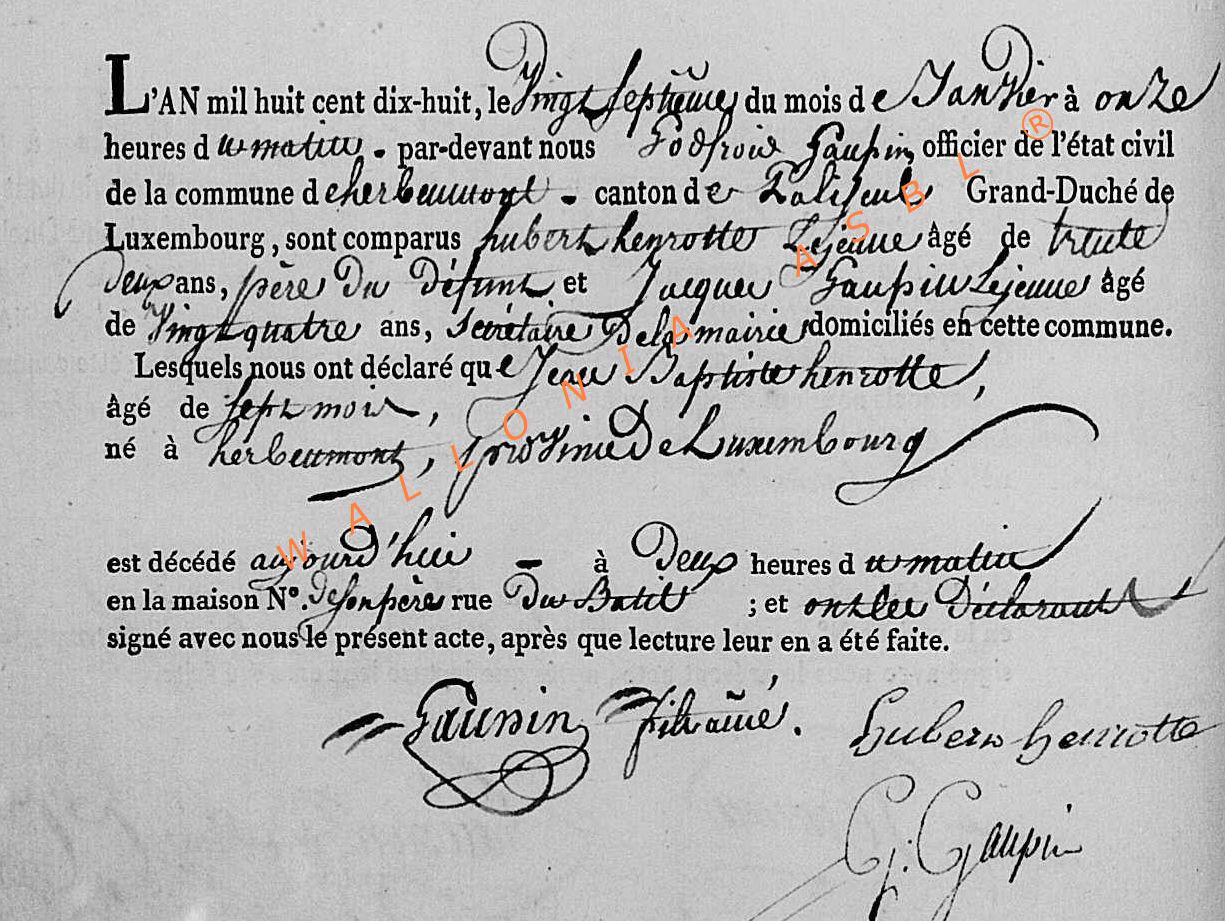 L'AN mil huit cent dix-huit, le Vingt septieme du mois de Janvier à onze
heures du matin - par-devant nous Godfroid Gaupin officier de l'état civil
de la commune d'herbeumont - canton de Paliseul Grand-Duché de
Luxembourg, sont comparus hubert henrotte Lejeune âgé de trente
Deux ans, père Du Défunt et Jacques Gaupin Lejeune âgé
de Vingt quatre ans, Secrétaire De la mairie domiciliés en cette commune.
Lesquels nous ont déclaré que Jean Baptiste henrotte,
âgé de sept mois,
né à herbeumont, province De Luxembourg
est décédé aujourd'hui - à Deux heures du matin
en la maison N°. De son père rue Du ; et ont les Déclarants
signé avec nous le présent acte, après que lecture leur en a été faite.
Gaupin fils ainé. hubert henrotte
G. Gaupin
WALLONIA ASBL ®